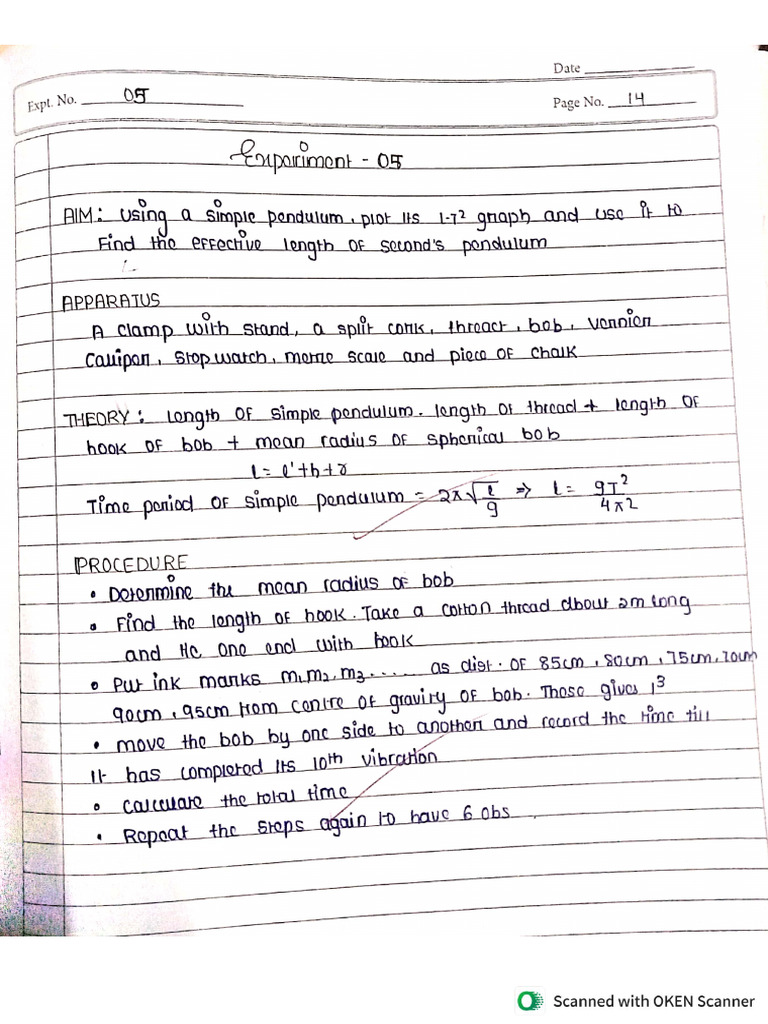 Date
Expt. No. 05
Page No. 14
Experiment - 05
AIM: Using a simple pendulum, plot its l-T² graph and use it to
find the effective length of second's pendulum
APPARATUS
A clamp with stand, a split cork, thread, bob, vernier
Calliper, stop watch, metre scale and piece of chalk
THEORY: length of simple pendulum. length of thread + length of
hook of bob + mean radius of spherical bob
l = l'+h+r
Time period of simple pendulum = 2π√(l/g) ⇒ l = gT²/4π2
PROCEDURE
• Determine the mean radius of bob
• Find the length of hook. Take a cotton thread about 2m long
and tie one end with hook
• Put ink marks m,m2,m3..... as dist. of 85cm, 80cm, 75cm, 70cm
90cm, 95cm from centre of gravity of bob. Those gives
• move the bob by one side to another and record the time till
It has completed its 10th vibration
• calculate the total time
• Repeat the steps again to have 6 obs.
Scanned with OKEN Scanner